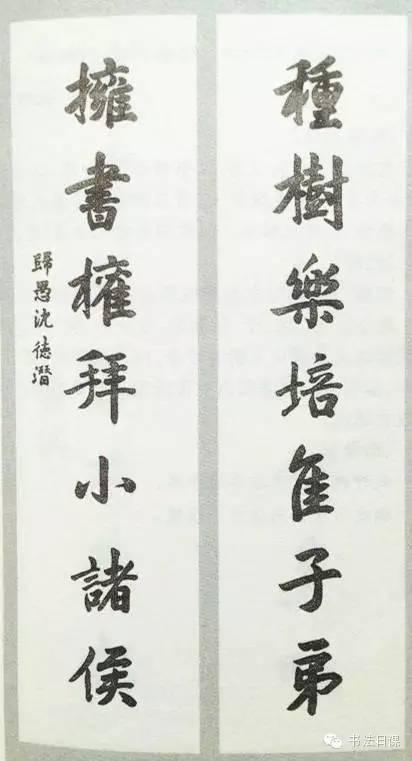 種樹樂培佳子弟
擁書權拜小諸侯
歸愚沈德潛
书法日课